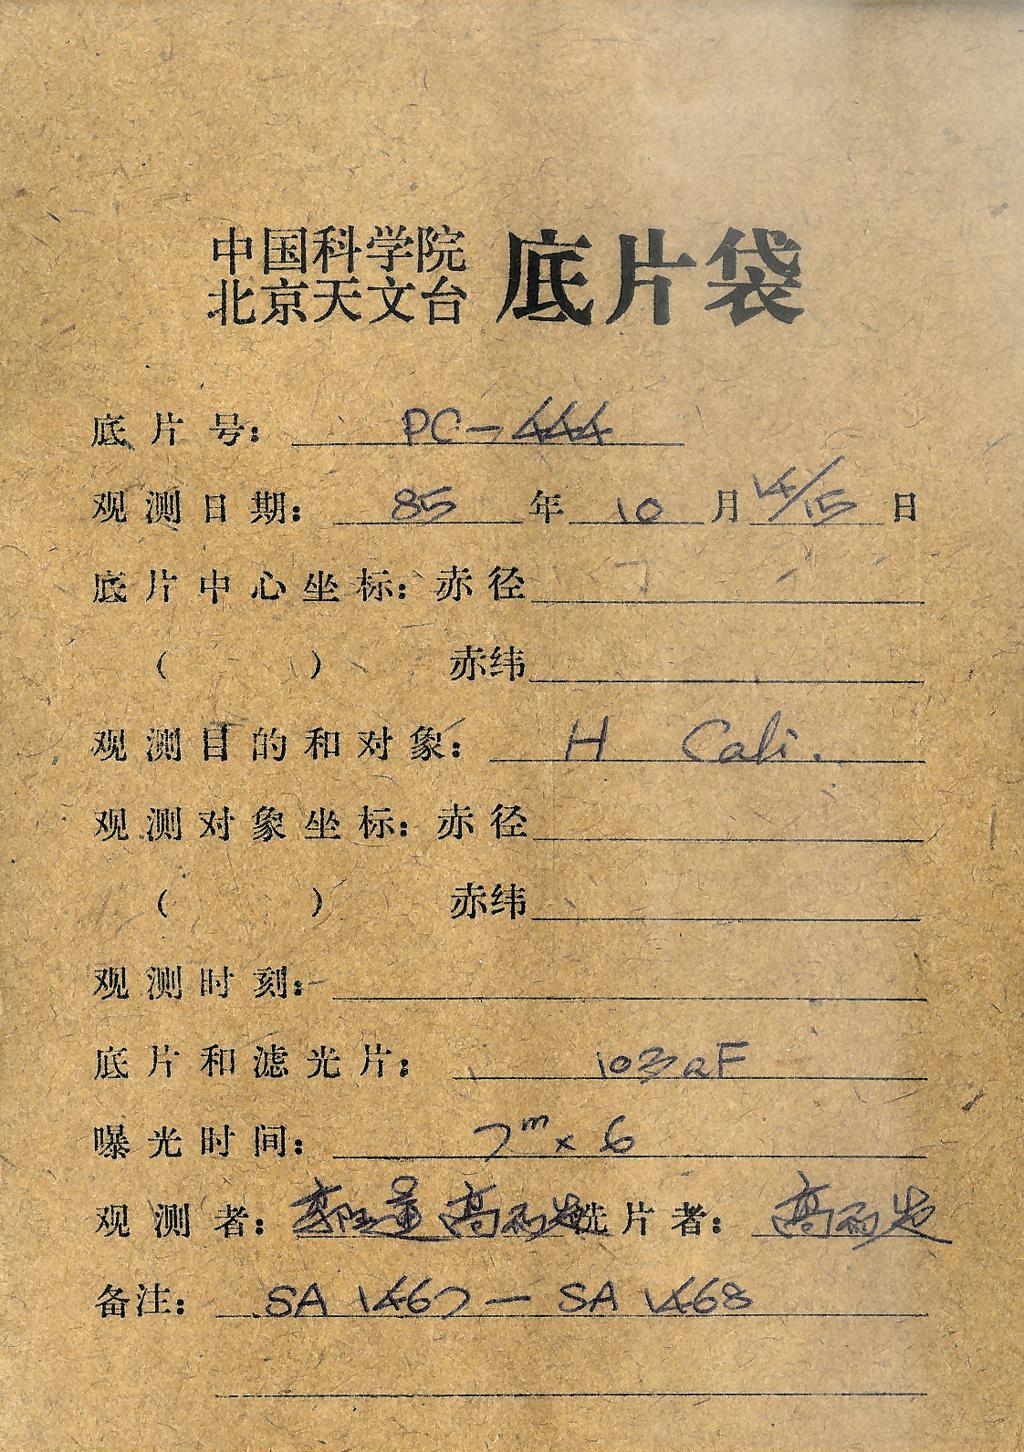 中国科学院
北京天文台 底片袋
底片号: PC-444
观测日期: 85 年 10 月 14/15 日
底片中心坐标: 赤径
( ) 赤纬
观测目的和对象: H Cali.
观测对象坐标: 赤径
( ) 赤纬
观测时刻:
底片和滤光片: 103aF
曝光时间: 7m x 6
观测者: 高 洗片者: 高
备注: SA 1467 - SA 1468